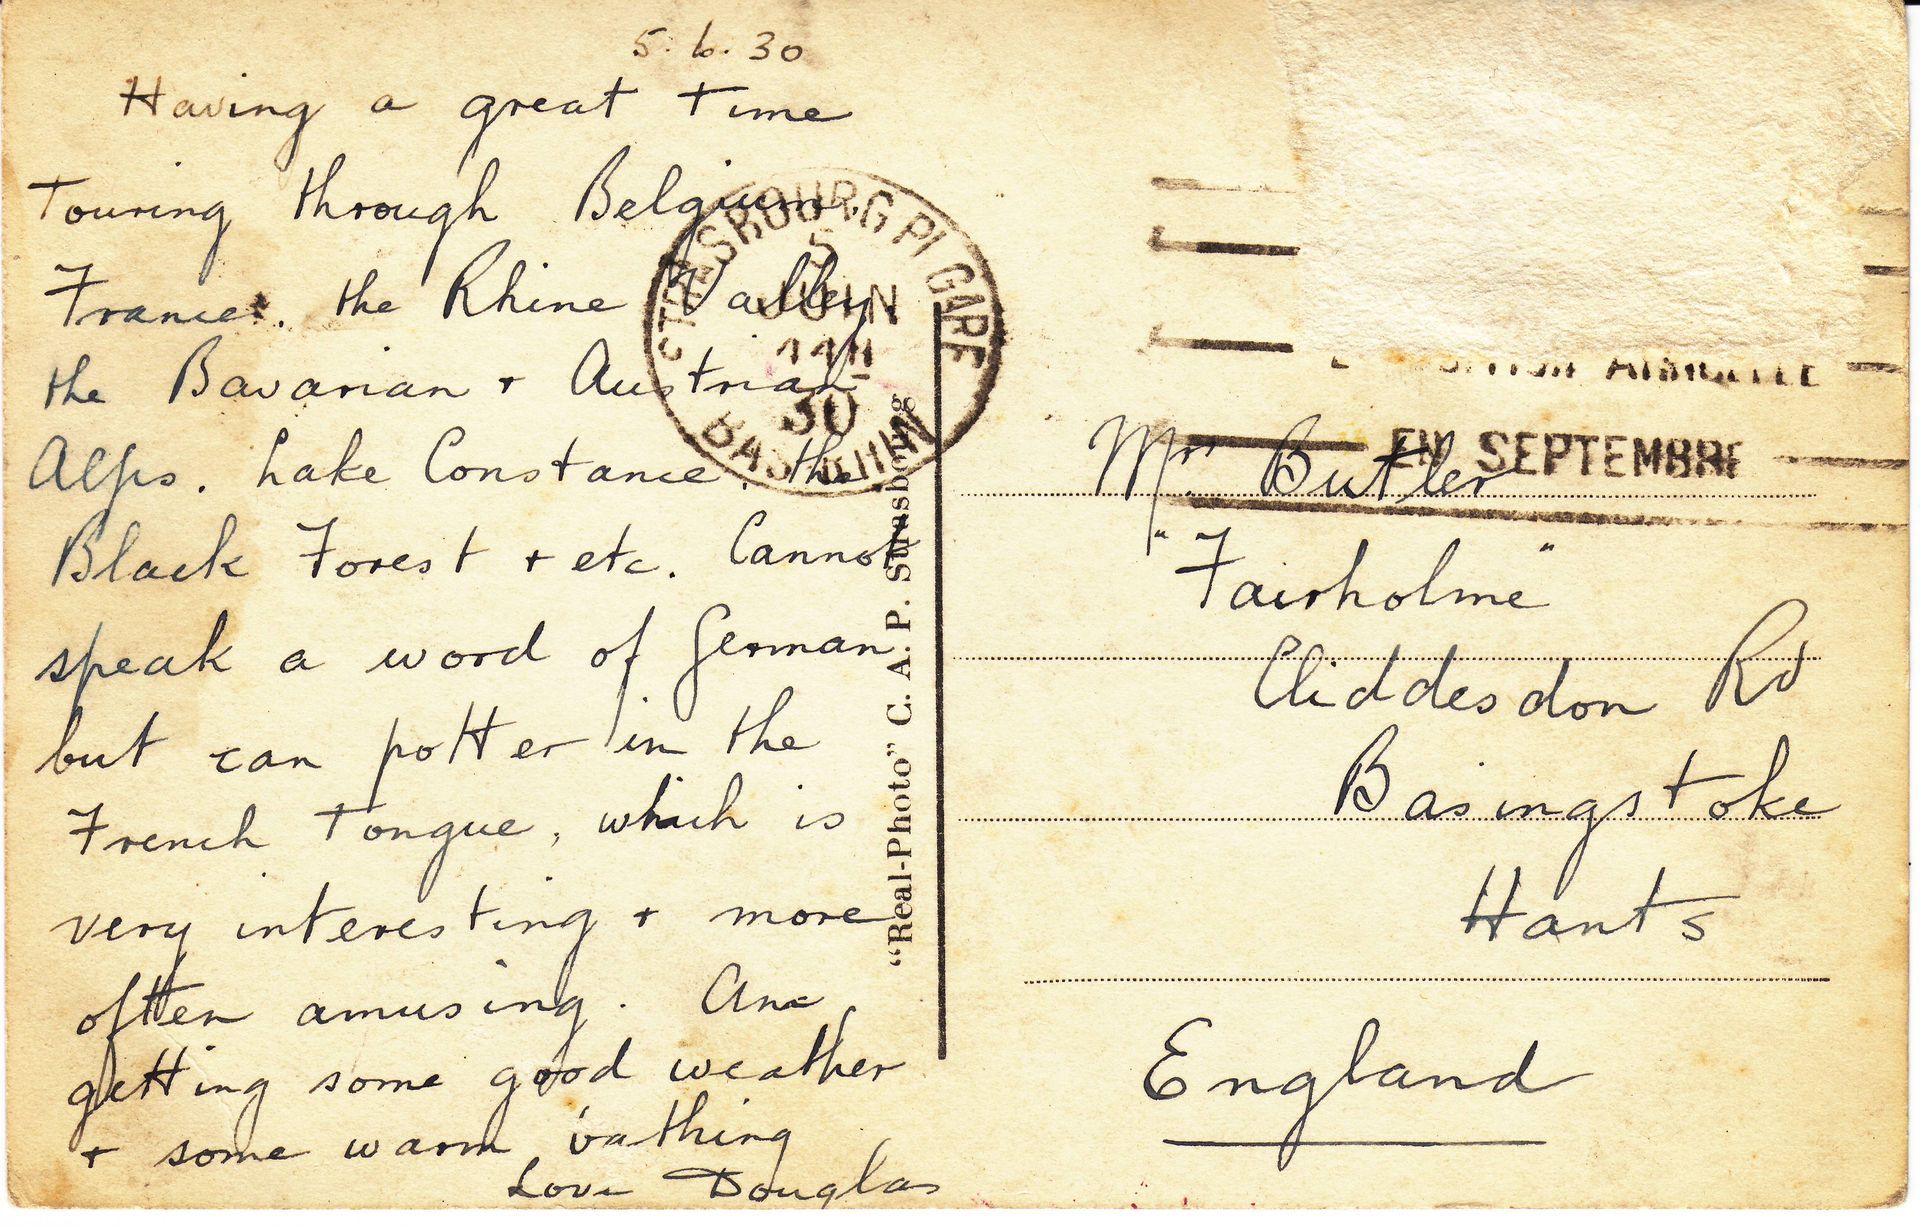 5.6.30
Having a great time
touring through Belgium,
France, the Rhine Valley
the Bavarian + Austrian
Alps. Lake Constance, the
Black Forest + etc. Cannot
speak a word of German
but can potter in the
French tongue, which is
very interesting + more
often amusing. Are
getting some good weather
+ some warm bathing
Love Douglas
STRASBOURG PL GARE
5
JUIN
30
BAS-RHIN
"Real-Photo" C. A. P. Strasbourg
EN SEPTEMBRE
Butler
"Fairholme"
Cliddesdon Rd
Basingstoke
Hants
England